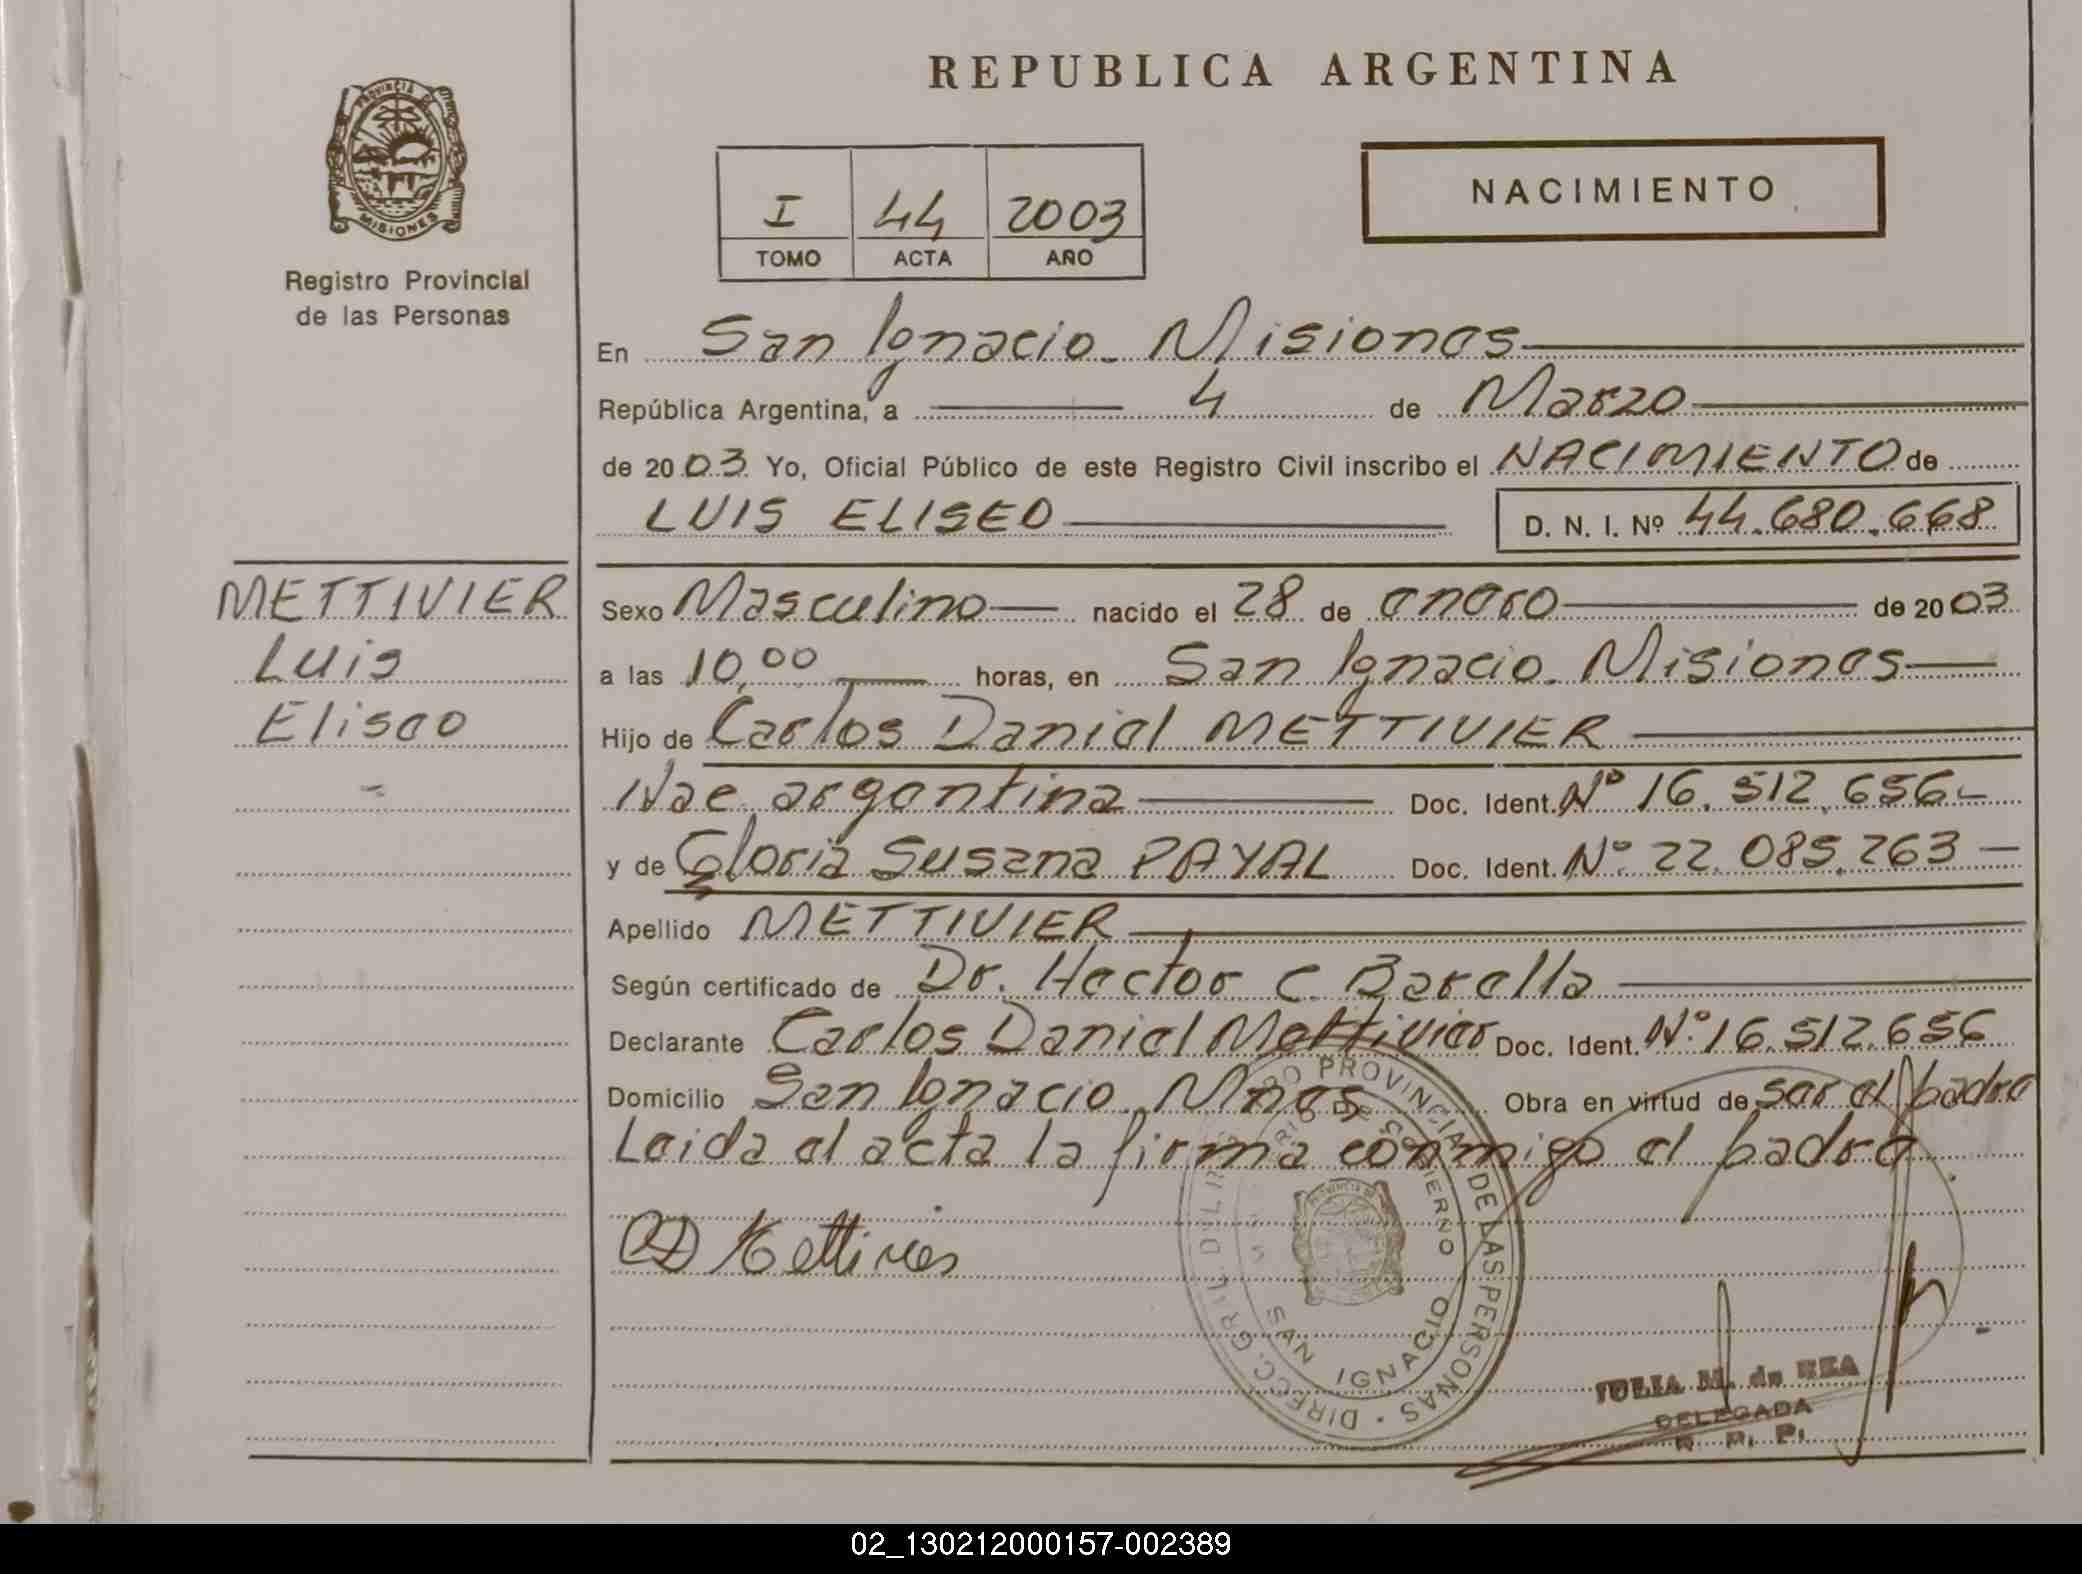 REPUBLICA ARGENTINA
PROVINCIA DE
MISIONES
Registro Provincial
de las Personas
I 44 2003
TOMO ACTA AÑO
NACIMIENTO
En San Ignacio. Misiones
República Argentina, a 4 de Marzo
de 2003 Yo, Oficial Público de este Registro Civil inscribo el NACIMIENTO de
LUIS ELISEO D. N. I. Nº 44.680.668
METTIVIER
Luis
Eliseo
Sexo Masculino nacido el 28 de enero de 2003
a las 10,00 horas, en San Ignacio. Misiones
Hijo de Carlos Daniel METTIVIER
Nac. argentina Doc. Ident. Nº 16.512.656
y de Gloria Susana PAYAL Doc. Ident. Nº 22.085.263
Apellido METTIVIER
Según certificado de Dr. Hector C. Barella
Declarante Carlos Daniel Mettivier Doc. Ident. Nº 16.512.656
Domicilio San Ignacio. Mnes Obra en virtud de ser el padre
Leida el acta la firma conmigo el padre
Mettivier
DIRECC. GRAL. DEL REGISTRO PROVINCIAL DE LAS PERSONAS
SAN IGNACIO
JULIA M. de REA
DELEGADA
R. P. P.
02_130212000157-002389